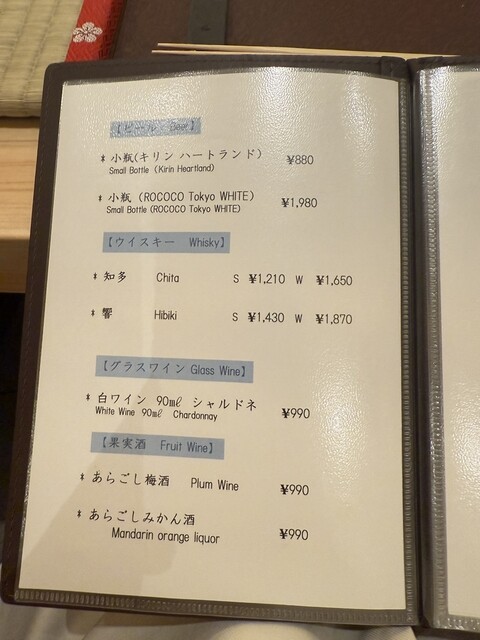 【ビール Beer】
* 小瓶(キリン ハートランド) ¥880
Small Bottle (Kirin Heartland)
* 小瓶 (ROCOCO Tokyo WHITE) ¥1,980
Small Bottle (ROCOCO Tokyo WHITE)
【ウイスキー Whisky】
* 知多 Chita S ¥1,210 W ¥1,650
* 響 Hibiki S ¥1,430 W ¥1,870
【グラスワイン Glass Wine】
* 白ワイン 90㎖ シャルドネ ¥990
White Wine 90㎖ Chardonnay
【果実酒 Fruit Wine】
* あらごし梅酒 Plum Wine ¥990
* あらごしみかん酒
Mandarin orange liquor ¥990